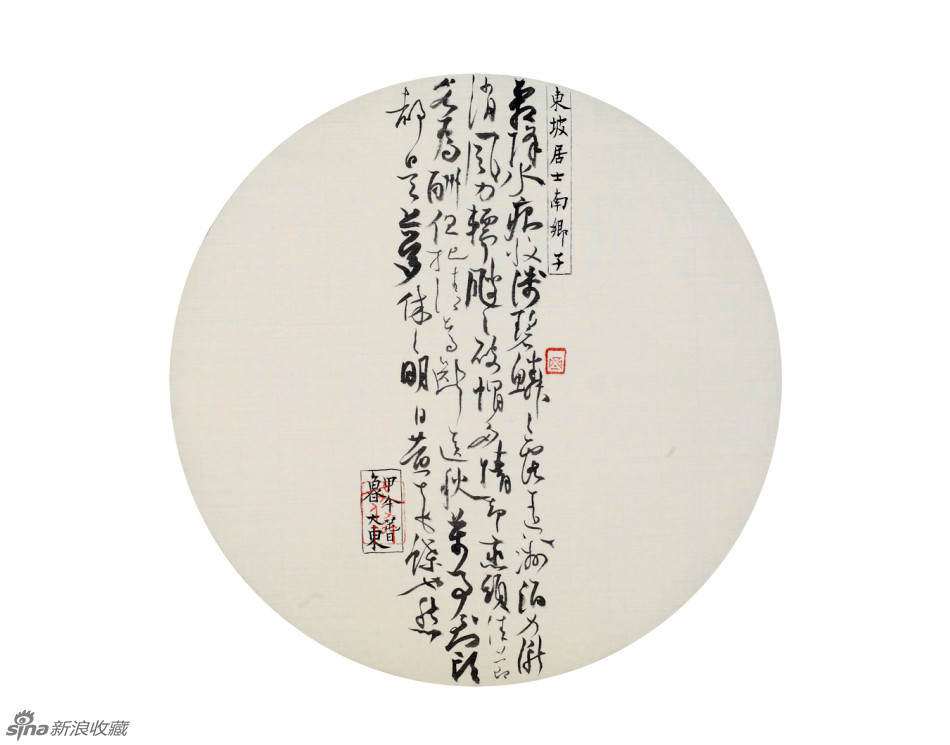 東坡居士南鄉子
霜降水痕收淺碧鱗〻露遠洲酒力漸
消風力軟颼〻破帽多情卻戀頭佳節
若為酬但把清尊斷送秋萬事到頭
都是夢休〻明日黃花蝶也愁
甲午
魯大東
sina新浪收藏